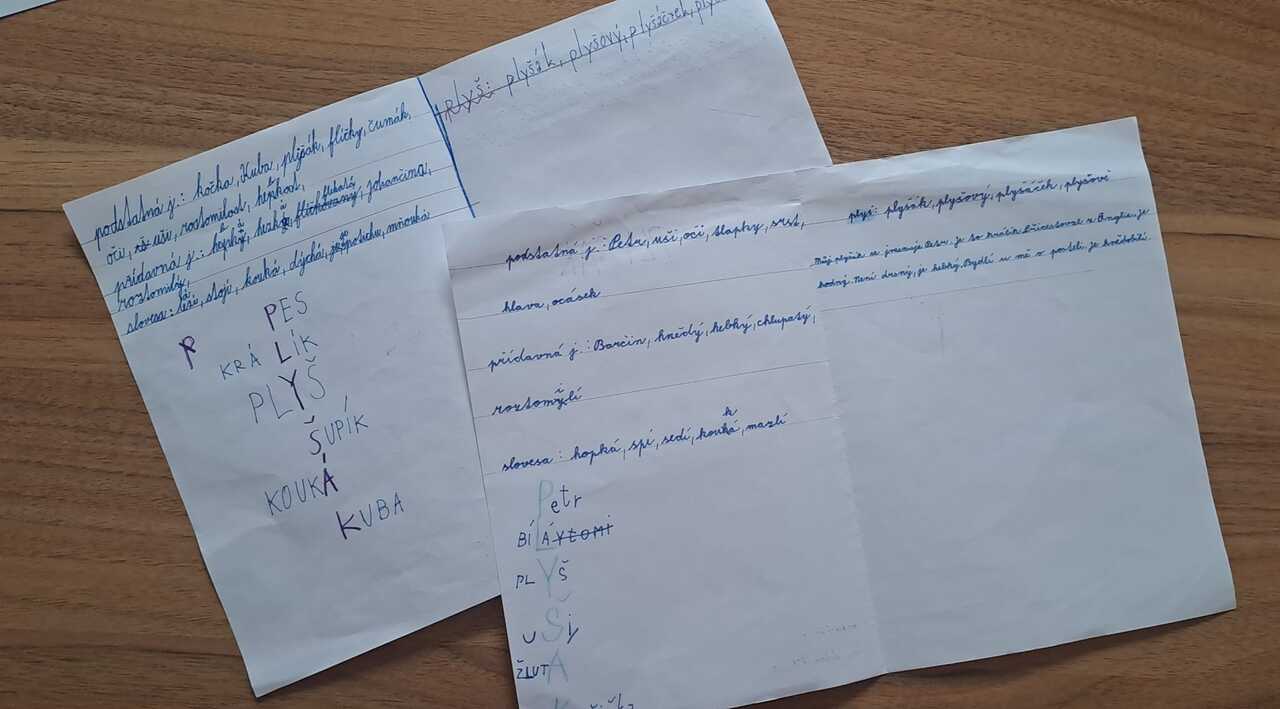 podstatná j.: kočka, Kuba, plyšák, flíčky, čumák,
oči, uši, roztomilost, hebkost,
přídavná j.: hebký, hezký flekatá flíčkovaný, johančina,
roztomilý,
slovesa: leží, stojí, kouká, dýchá, mňouká
P
PES
KRÁLÍK
PLYŠ
ŠUPÍK
KOUKÁ
KUBA
plyš: plyšák, plyšový, plyšáček,
podstatná j.: Petr, uši, oči, tlapky, srst,
hlava, ocásek
přídavná j.: Barčin, hnědý, hebký, chlupatý,
roztomylí i
slovesa: hopká, spí, sedí, kouká k, mazlí
Petr
BÍLÁ
PLYŠ
UŠi
ŽLUTÁ
plyš: plyšák, plyšový, plyšáček, plyšové
Můj plyšák se jmenuje Petr. je to králík. z Anglie. je
hodný. Není dravý, je hebký. Bydlí u mě v posteli. je